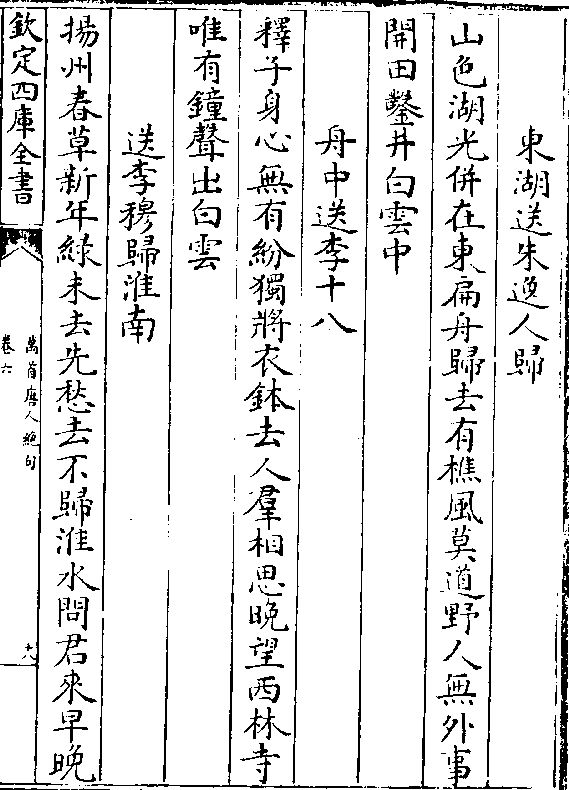 東湖送朱逸人歸
山色湖光併在東扁舟歸去有樵風莫道野人無外事
開田鑿井白雲中
舟中送李十八
釋子身心無有紛獨將衣鉢去人羣相思晚望西林寺
唯有鐘聲出白雲
送李穆歸淮南
揚州春草新年綠未去先愁去不歸淮水問君來早晚
欽定四庫全書
萬首唐人絶句
卷六
十九